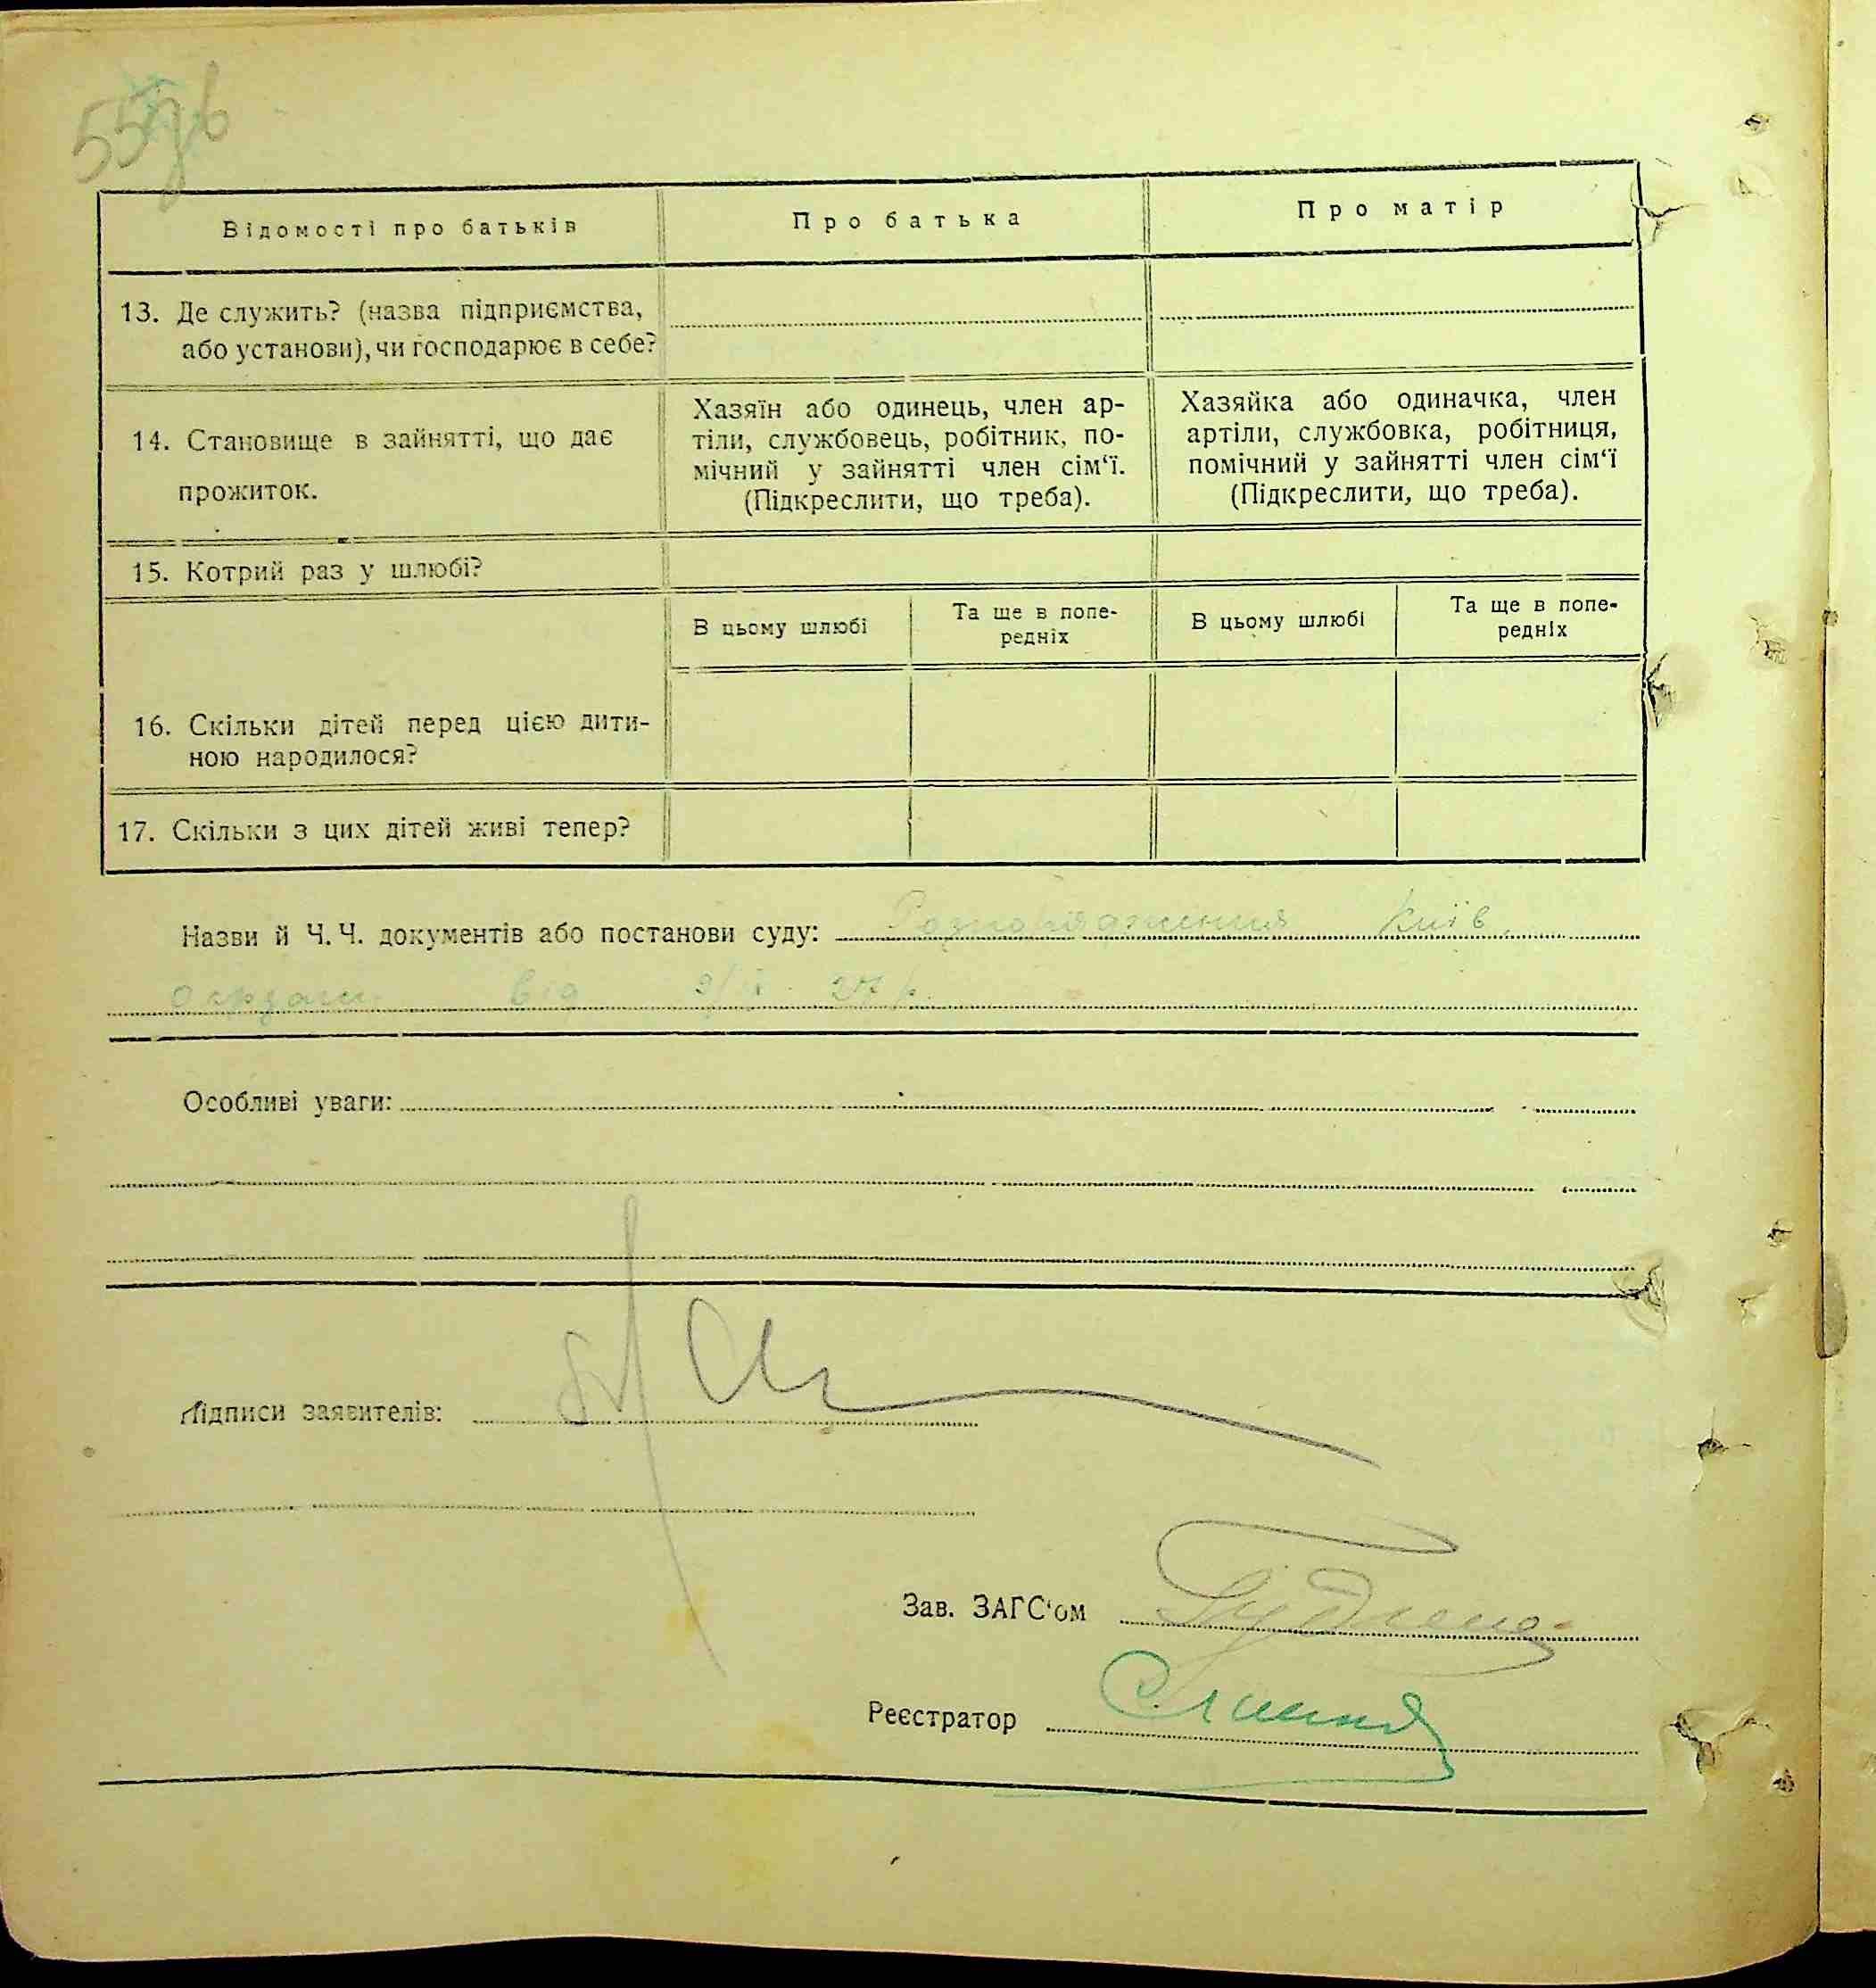 55
Відомості про батьків
Про батька
Про матір
13. Де служить? (назва підприємства,
або установи), чи господарює в себе?
14. Становище в зайнятті, що дає
прожиток.
Хазяїн або одинець, член ар-
тіли, службовець, робітник, по-
мічний у зайнятті член сім‘ї.
(Підкреслити, що треба).
Хазяйка або одиначка, член
артіли, службовка, робітниця,
помічний у зайнятті член сім‘ї
(Підкреслити, що треба).
15. Котрий раз у шлюбі?
В цьому шлюбі
Та ще в попе-
редніх
В цьому шлюбі
Та ще в попе-
редніх
16. Скільки дітей перед цією дити-
ною народилося?
17. Скільки з цих дітей живі тепер?
Назви й Ч. Ч. документів або постанови суду: Розпорядження Київ.
від 27 р.
Особливі уваги:
Підписи заявителів:
Зав. ЗАГС‘ом
Реєстратор